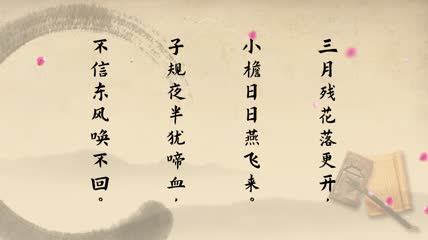 三月残花落更开，
小檐日日燕飞来。
子规夜半犹啼血，
不信东风唤不回。